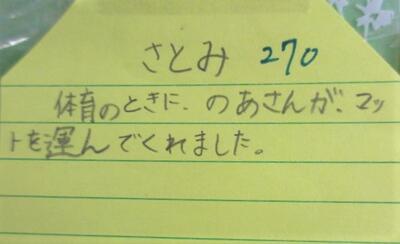 さとみ 270
体育のときに、のあさんが、マッ
トを運んでくれました。